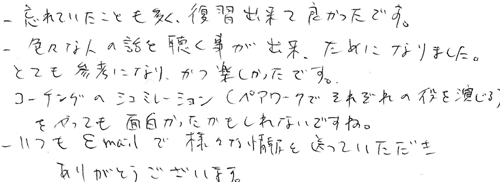 - 忘れていたことも多く、復習出来て良かったです。
- 色々な人の話を聴く事が出来、ためになりました。
とても参考になり、かつ楽しかったです。
コーチングのシュミレーション(ペアワークでそれぞれの役を演じる)
をやっても面白かったかもしれないですね。
- いつもEmailで様々な情報を送っていただき
ありがとうございます。